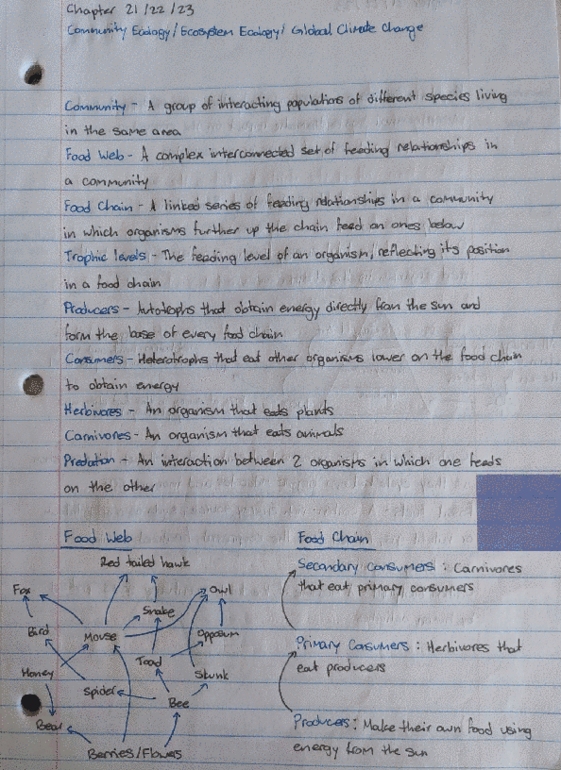 Chapter 21/22/23
Community Ecology/Ecosystem Ecology/Global Climate Change
Community - A group of interacting populations of different species living
in the same area
Food Web - A complex interconnected set of feeding relationships in
a community
Food Chain - A linked series of feeding relationships in a community
in which organisms further up the chain feed on ones below
Trophic levels - The feeding level of an organism, reflecting its position
in a food chain
Producers - Autotrophs that obtain energy directly from the sun and
form the base of every food chain
Consumers - Heterotrophs that eat other organisms lower on the food chain
to obtain energy
Herbivores - An organism that eats plants
Carnivores - An organism that eats animals
Predation - An interaction between 2 organists in which one feeds
on the other
Food Web
Red tailed hawk
Fox
Owl
Snake
Bird
Mouse
Opposum
Toad
Honey
Skunk
Spider
Bee
Bear
Berries/Flowers
Food Chain
Secondary Consumers : Carnivores
that eat primary consumers
Primary Consumers : Herbivores that
eat producers
Producers : Make their own food using
energy from the sun